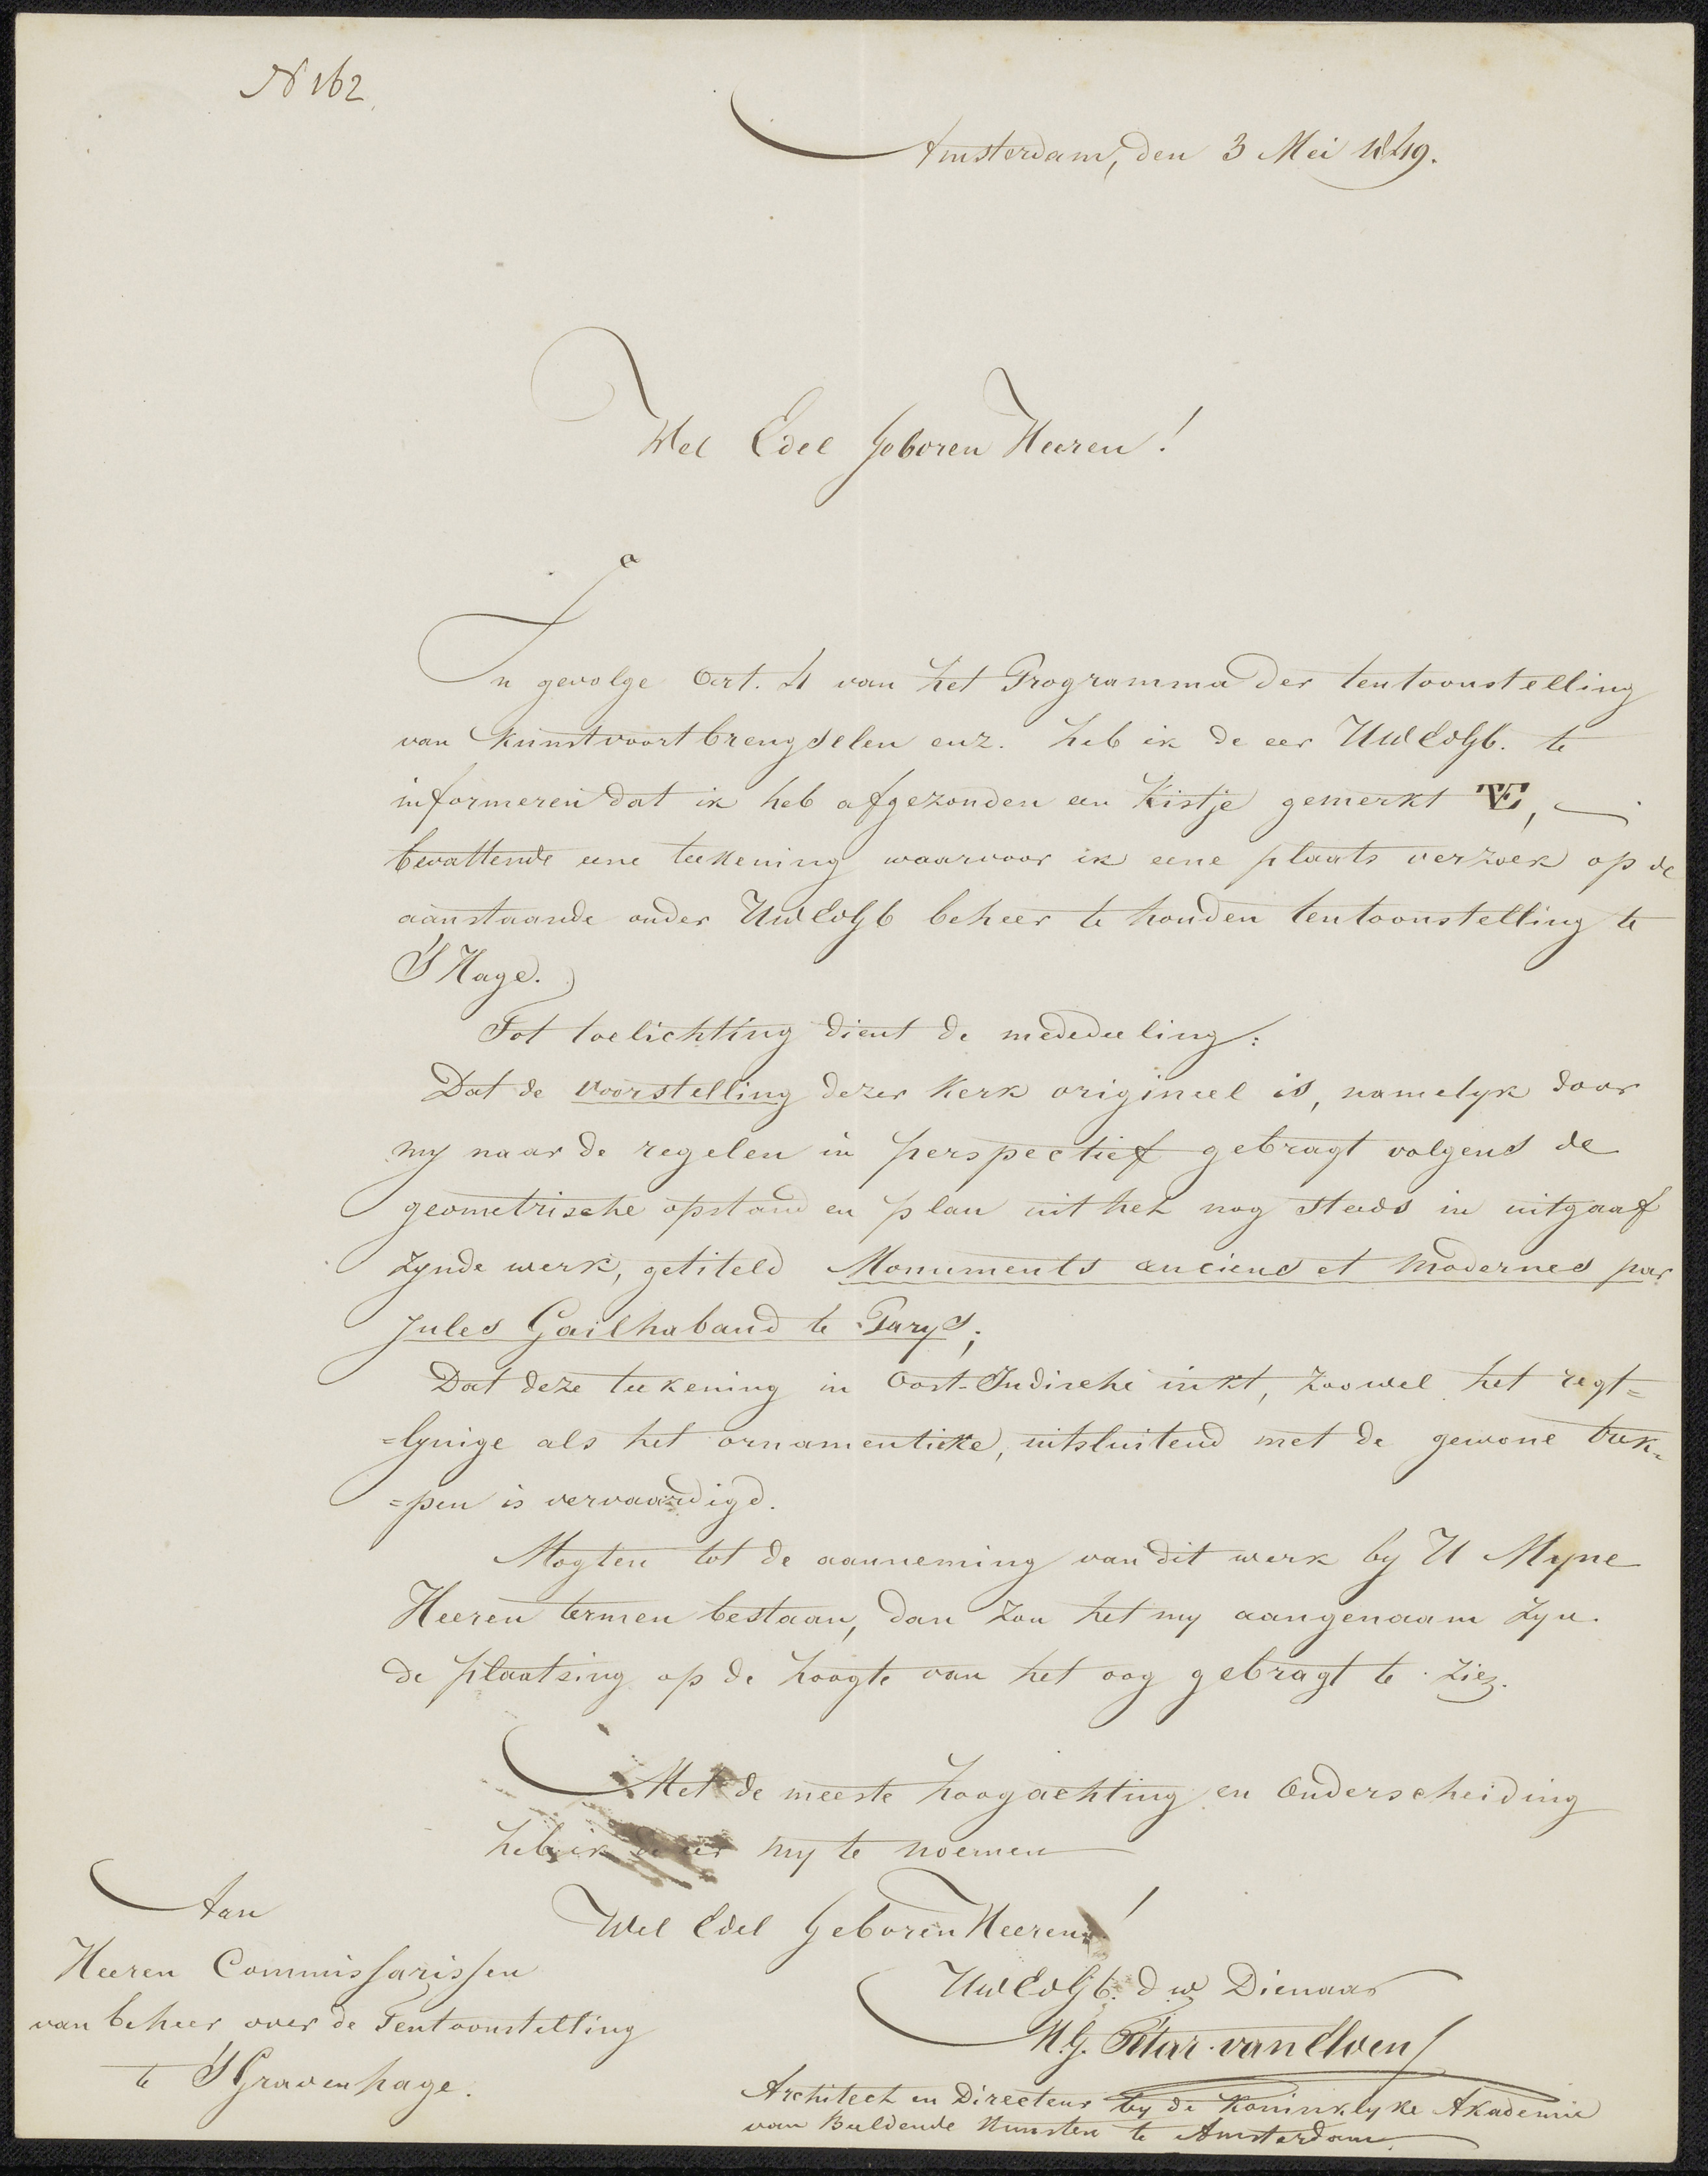 N 162.
Amsterdam, den 3 Mei 1849.
Wel Edel Geboren Heeren!
In gevolge Art. 4 van het Programma der tentoonstelling
van Kunstvoortbrengselen enz. heb ik de eer UwEdGb. te
informeren dat ik heb afgezonden een Kistje gemerkt TVE,
bevattende eene teekening waarvoor ik eene plaats verzoek op de
aanstaande onder UwEdGb beheer te houden tentoonstelling te
'S Hage.
Tot toelichting dient de mededeeling:
Dat de voorstelling dezer Kerk origineel is, namelyk door
my naar de regelen in perspectief gebragt volgens de
geometrische opstand en plan uit het nog steeds in uitgaaf
zynde werk, getiteld Monuments anciens et modernes par
Jules Gailhabaud te Parys;
Dat deze teekening in Oost-Indische inkt, zoowel het regt=
=lynige als het ornamentieke, uitsluitend met de gewone trek=
=pen is vervaardigd.
Mogten tot de aanneming van dit werk by U Myne
Heeren termen bestaan, dan zou het my aangenaam zyn
de plaatsing op de hoogte van het oog gebragt te zien.
Met de meeste hoogachting en Onderscheiding
heb ik de eer my te noemen
Wel Edel Geboren Heeren!
UwEdGb. d w Dienaar
M.G. Tétar van Elven
Architect en Directeur by de Koninklyke Akademie
van Beeldende Kunsten te Amsterdam.
Aan
Heeren Commissarissen
van beheer over de Tentoonstelling
te 'S Gravenhage.